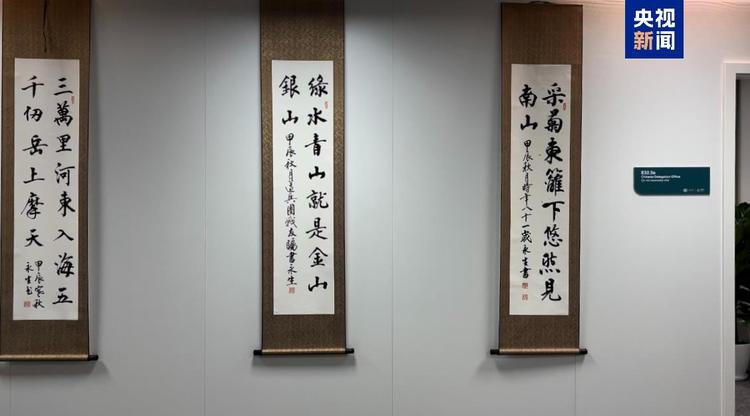 央视
新闻
三萬里河東入海五
千仞岳上摩天
甲辰寒秋
永生书
緣水青山就是金山
銀山
甲辰秋月
兵團战友嘱書永生
采菊東籬下悠然見
南山
甲辰秋月時年八十一歲永生書
Chinese Delegation Office